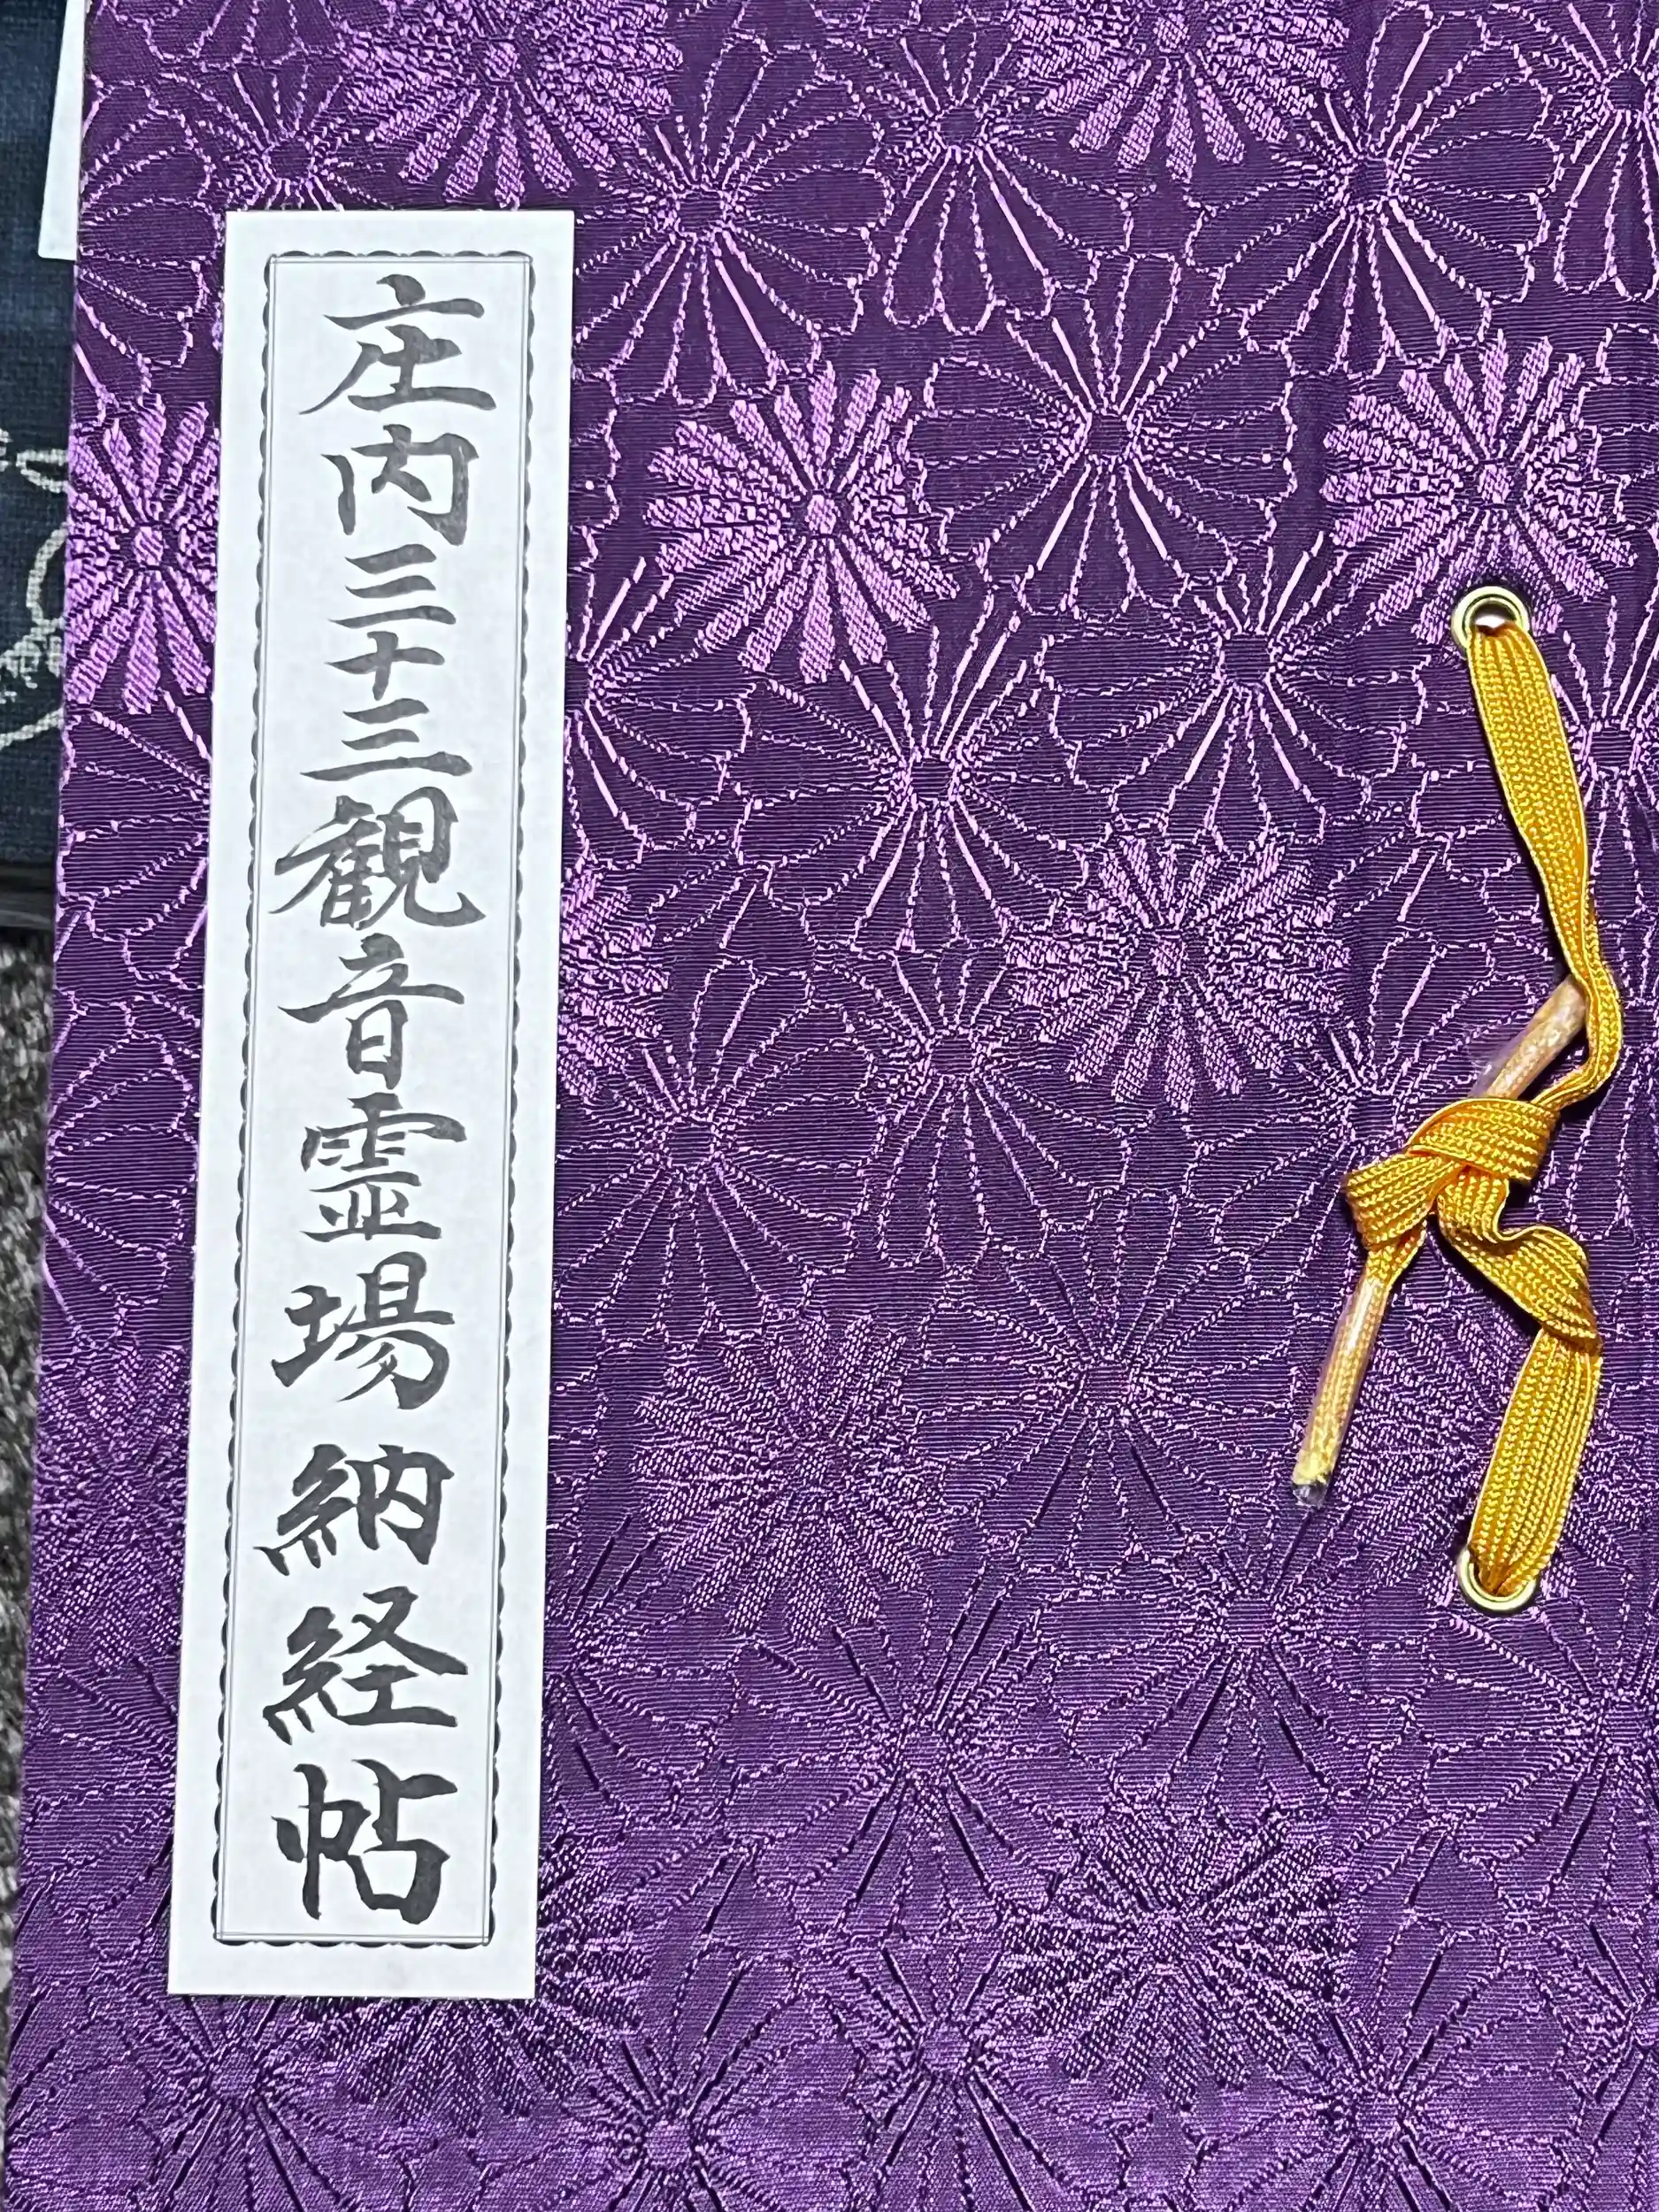 庄内三十三観音霊場納経帖